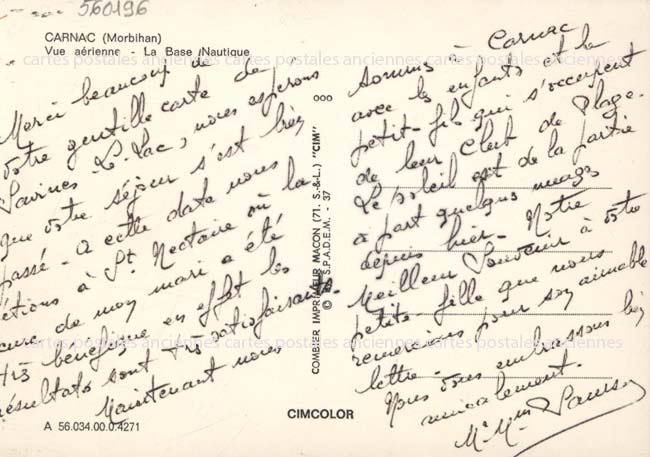 560196
CARNAC (Morbihan)
Vue aérienne - La Base Nautique
cartes postales anciennes cartes postales anciennes cartes postales
Merci beaucoup de
votre gentille carte de
Savines-Le-Lac, nous espérons
que votre séjour s'est bien
passé - A cette date nous
étions à St Nectaire où la
cure de mon mari a été
très bénéfique en effet les
résultats sont très satisfaisants.
Maintenant nous
ooo
COMBIER IMPRIMEUR MACON (71. S.-&-L.) "CIM"
© S.P.A.D.E.M. - 37
sommes à Carnac
avec les enfants et le
petit-fils qui s'occupent
de leur Club de Plage.
Le soleil est de la partie
à part quelques nuages
depuis hier - Notre
Meilleur Souvenir à votre
petite-fille que nous
remercions pour son aimable
lettre -
Nous vous embrassons bien
amicalement.
Mr Mme
CIMCOLOR
A 56.034.00.0.4271